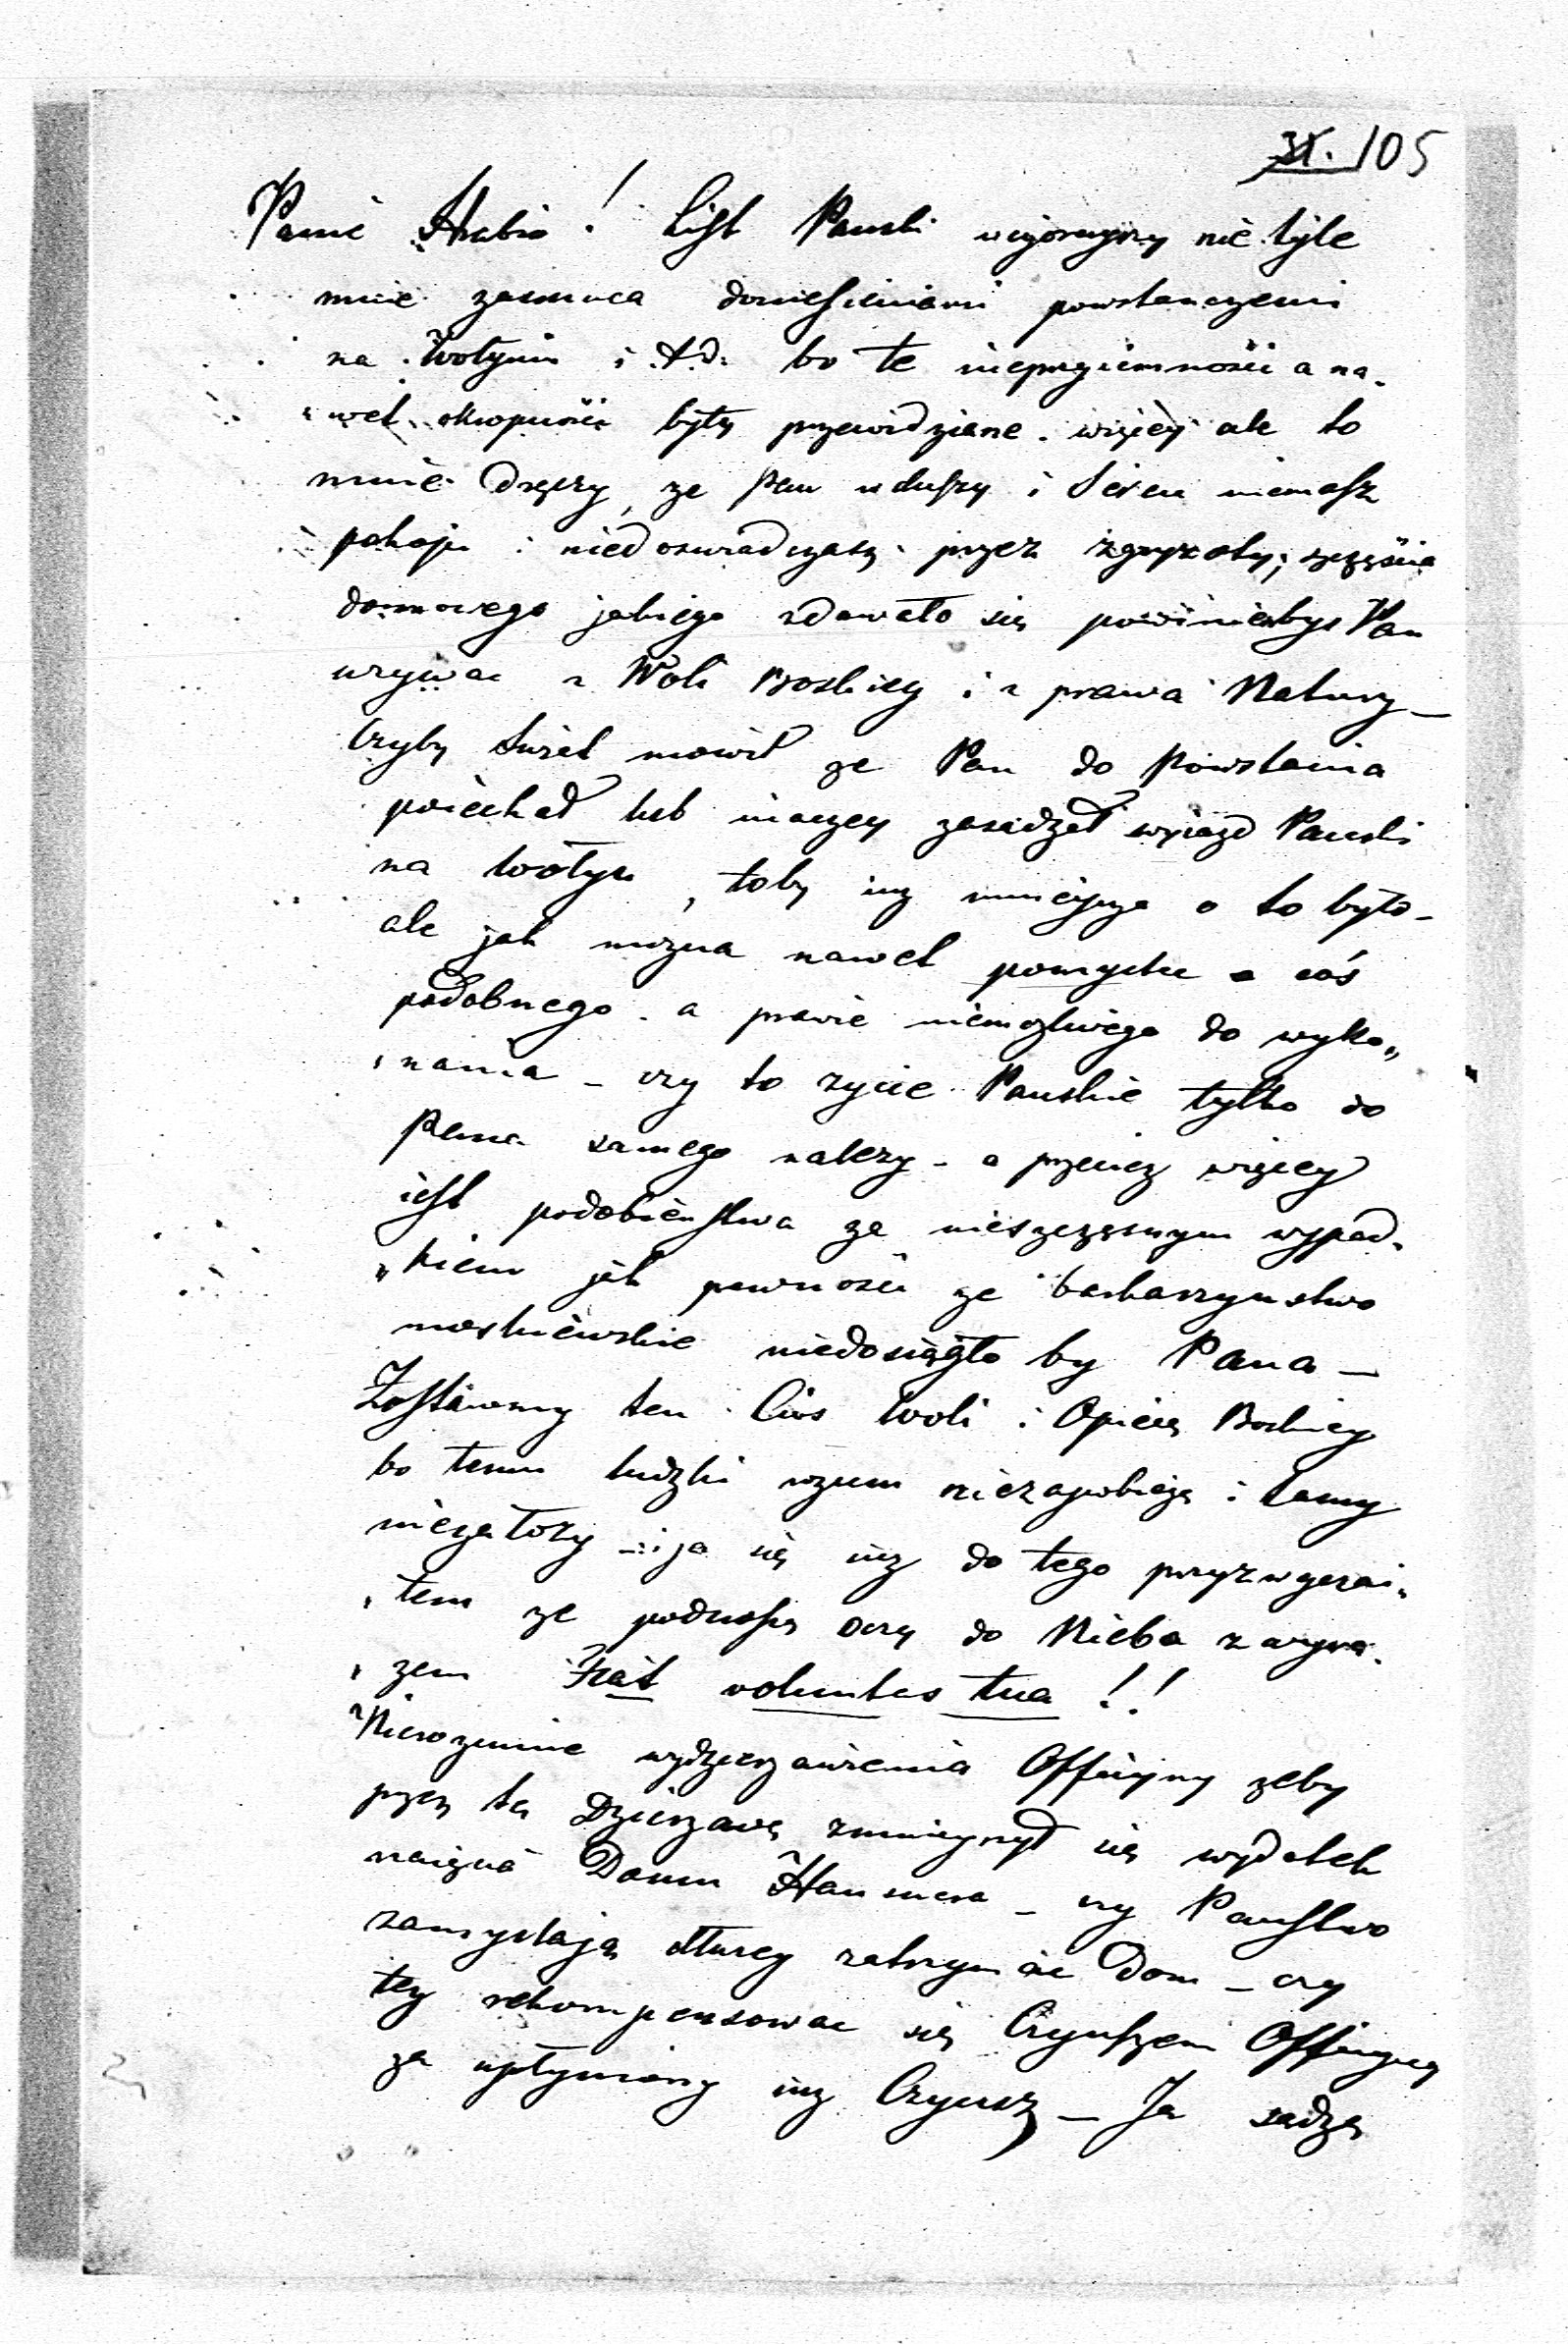 31. 105
Panie Hrabio! List Pański wczorayszy nie tyle
mnie zasmuca doniesieniami powstanczemi
na Wołyniu i t.d. bo te nieprzyiemności a na-
„wet okropności były przewidziane. więcéy ale to
mnie dręczy, ze Pan w duszy i Sercu niemasz
pokoju i niedoswiadczasz przez zgryzoty, szczęścia
domowego jakiego zdawało się powinienbys Pan
uzywac z Woli Boskiey i z prawa Natury_
Czyby Swiat mowił ze Pan do Powstania
poiechał lub inaczey zasadzał wyiazd Pański
na Wołyn, toby iuz mnieysza o to było_
ale jak mozna nawet pomysleć o coś
podobnego. a prawie niemozliwego do wyko„
„nania _ czy to zycie Pańskie tylko do
Pana samego nalezy _ a przeciez więcey
iest podobieństwa ze nieszczęsnym wypad„
„kiem jak pewności ze barbarzynstwo
moskiewskie niedosięgło by Pana _
Zostawmy ten Cios Woli i Opiece Boskiey
bo temu ludzki rozum niezapobieży i tamy
niezałozy _ i ja się iuz do tego przyzwyczai„
„łem ze podnoszę oczy do Nieba z wyra„
„zem Fiat voluntas tua!!
Nierozumie wydzierzawienia Officyny zeby
przez tę Dzierzawę zmnieyszył się wydatek
naięcia Domu Hausnera _ czy Państwo
zamyslają dłuzey zatrzymać Dom _ czy
tez rekompensowac się Czynszem Officyny
za upłyniony iuz Czynsz _ Ja sadzę